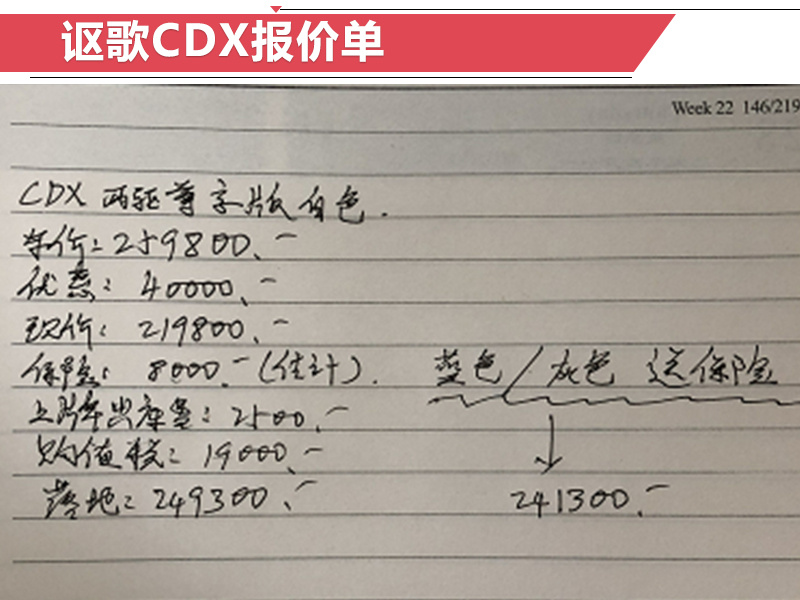 讴歌CDX报价单
Week 22 146/219
CDX 两驱尊享版 白色.
车价: 259800.-
优惠: 40000.-
现价: 219800.-
保险: 8000.-(估计). 蓝色/灰色 送保险
上牌出库费: 2500.-
购值税: 19000.-
落地: 249300.- 241300.-